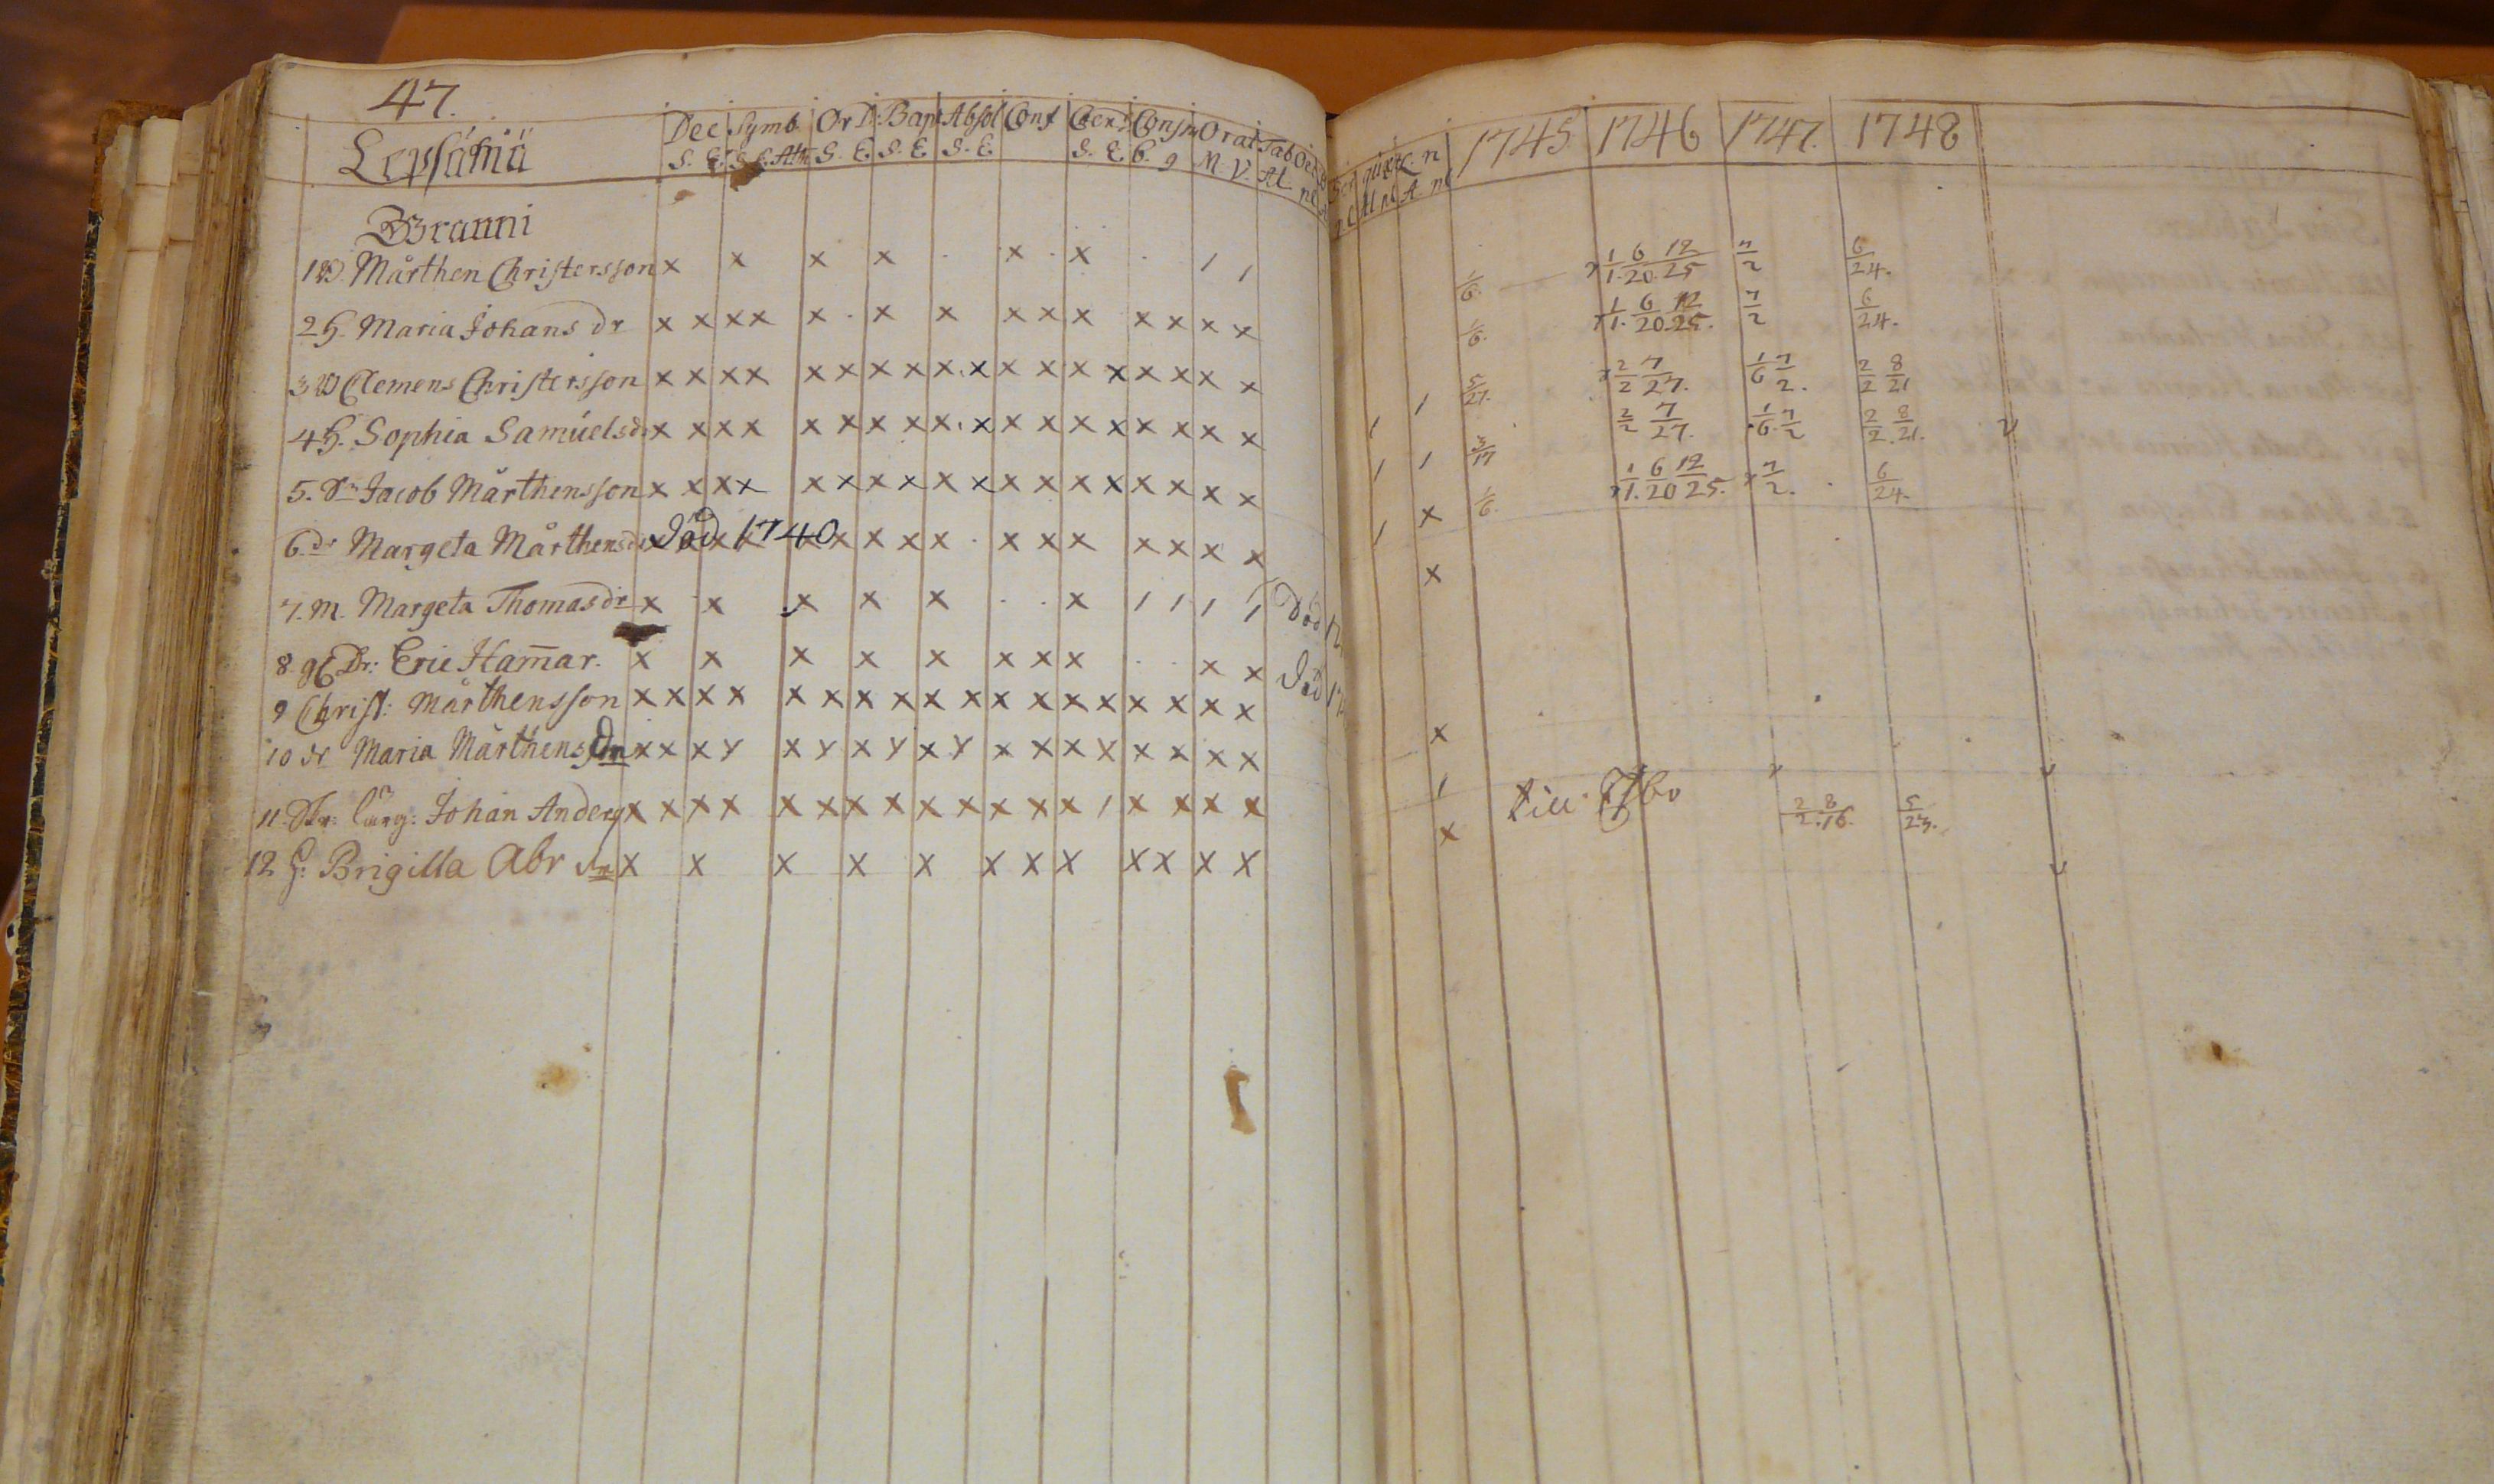 47.
Lepsämä
Dec Symb Or D. Bapt Absol Conf Coen D Consn Orat Tab Oec
S. E. S. E. Ath S. E. S. E S. E. S. E 6. 9 M. V. At. nt
1745 1746 1747. 1748
Branni
1 W. Mårthen Christersson x x x x · x · x · · / / 1/6. 1/1. 6/20. 12/25 7/2 6/24.
2 H. Maria Johans dr x x x x x · x x x x x x x x x 1/6. 1/1. 6/20. 12/25. 7/2 6/24.
3 W Clemens Christersson x x x x x x x x x x x x x x x x x x / 5/27. 2/2 7/27. 1/6 7/2. 2/2 8/21
4 H. Sophia Samuelsdr x x x x x x x x x x x x x x x x x x / / / 3/17 2/2 7/27. 1/6. 7/2 2/2. 8/21.
5. Sn Jacob Mårthensson x x x x x x x x x x x x x x x x x x / x 1/6. 1/1. 6/20 12/25. 7/2. 6/24.
6. dr Margeta Mårthensdr död 1740 x x x x · x x x x x x x x
7. m. Margeta Thomasdr x x x x x · · x / / / / Död
8. Dr: Eric Ham̄ar. x x x x x x x x · · x x Död
9 Christ: Mårthensson x x x x x x x x x x x x x x x x x x x
10 dr Maria Mårthens x x x x x x x x x x x x x x x x x x / till Åbo
11. Johan Anders x x x x x x x x x x x x x / x x x x x 2/2. 8/16. 5/23.
12 H: Brigitta Abr x x x x x x x x x x x x